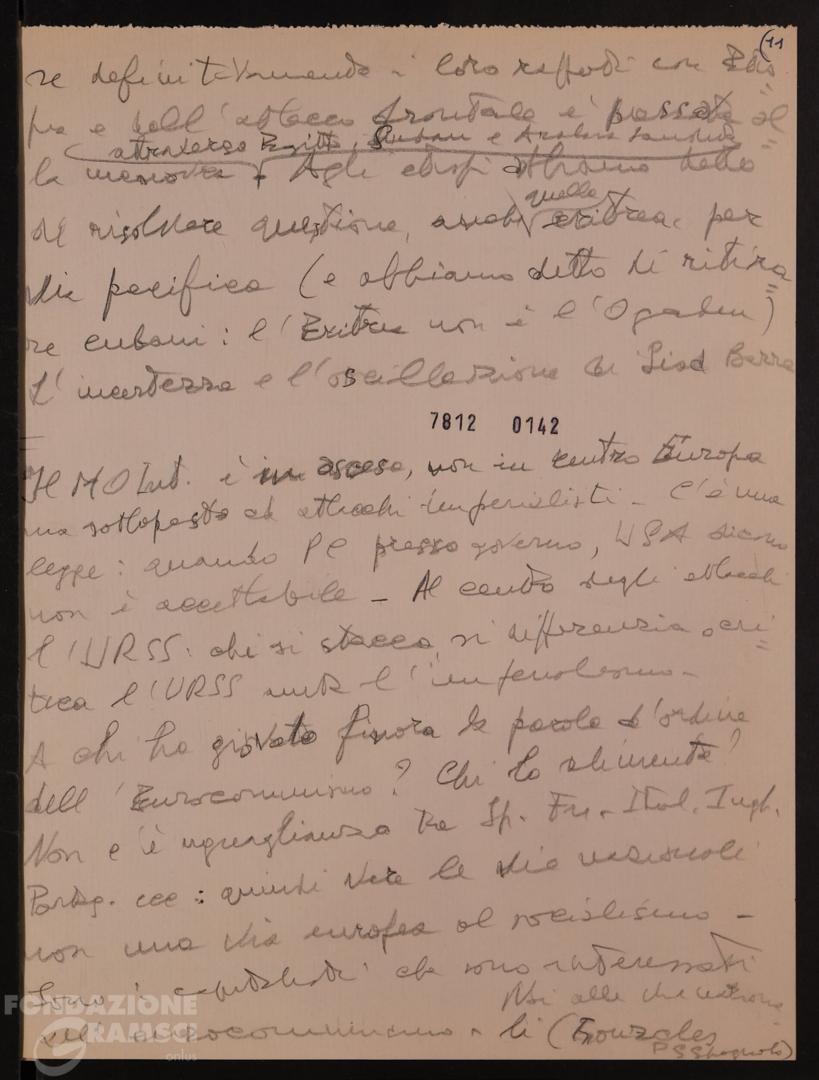 11
re definitivamente i loro rapporti con Etio
pia e dall'attacco frontale è passata al
attraverso Egitto, Sudan e Arabia Saudita
la manovra. Agli etiopi abbiamo detto
di risolvere questione, anche quella eritrea, per
via pacifica (e abbiamo detto di ritira=
re cubani: l'Eritrea non è l'Ogaden)
L'incertezza e l'oscillazione di Siad Barre
7812 0142
Il MO Int. è in ascesa, non in centro Europa
ma sottoposto ad attacchi imperialisti - C'è una
legge: quando PC presso governo, USA dicono
non è accettabile - Al centro degli attacchi
l'URSS: chi si stacca, si differenzia, cri=
tica l'URSS aiuta l'imperialismo -
A chi ha giovato finora la parola d'ordine
dell'Eurocomunismo? Chi lo alimenta?
Non c'è uguaglianza tra Sp. Fr. Ital. Ingh.
Portog. ecc: quindi vere le vie nazionali
non una via europea al socialismo -
Sono i capitalisti che sono interessati
Noi alle vie nazionali
eurocomunismo - (Gonzales
PSSpagnolo)
FONDAZIONE
GRAMSCI
onlus